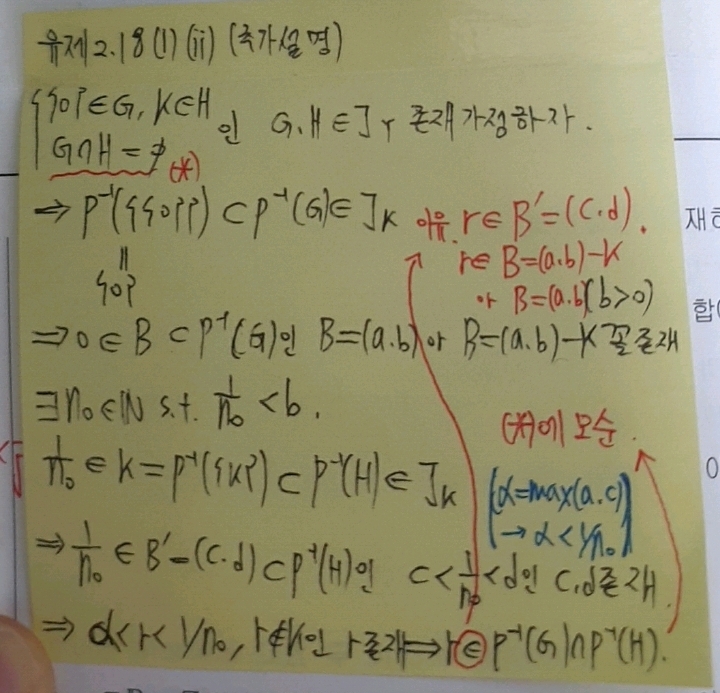 유제 2.18 (1) (ii) (추가설명)
{ {0} ∈ G, K ∈ H 인 G, H ∈ J_Y 존재 가정하자.
G∩H = ∅ (*)
⇒ p⁻¹({{0}}) ⊂ p⁻¹(G) ∈ J_K
"
{0}
이유. r ∈ B' = (c.d).
r ∈ B = (a.b) - K
or B = (a.b) (b>0)
⇒ 0 ∈ B ⊂ p⁻¹(G)인 B = (a.b) or B = (a.b) - K 꼴 존재
∃ n₀ ∈ ℕ s.t. 1/n₀ < b.
(*)에 모순.
1/n₀ ∈ K = p⁻¹({K}) ⊂ p⁻¹(H) ∈ J_K
(α = max(a.c)
→ α < 1/n₀)
⇒ 1/n₀ ∈ B' = (c.d) ⊂ p⁻¹(H)인 c < 1/n₀ < d인 c,d 존재
⇒ α < r < 1/n₀, r ∉ K인 r 존재 ⇒ r ∈ p⁻¹(G) ∩ p⁻¹(H).
재하
합